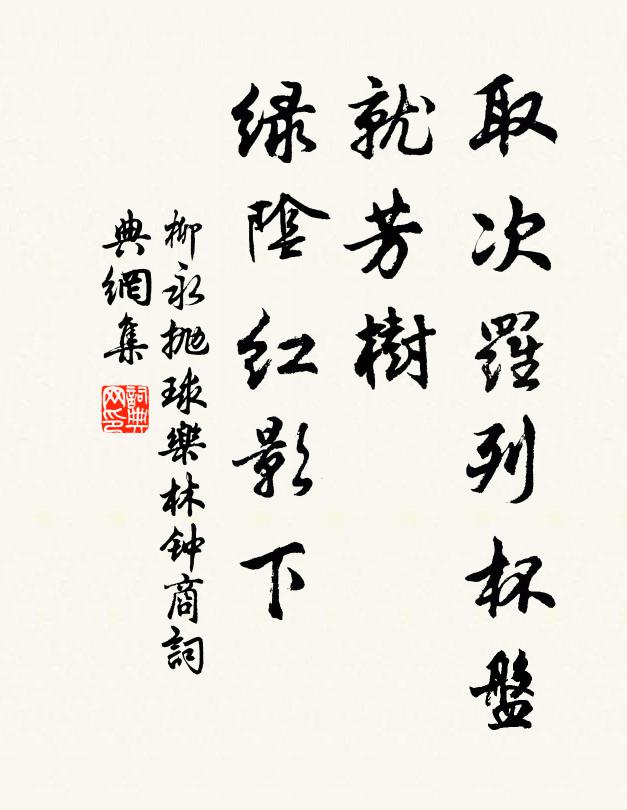 取次羅列杯盤
就芳樹
緑陰紅影下
柳永抛球樂林钟商詞
典網集
詞典
网印